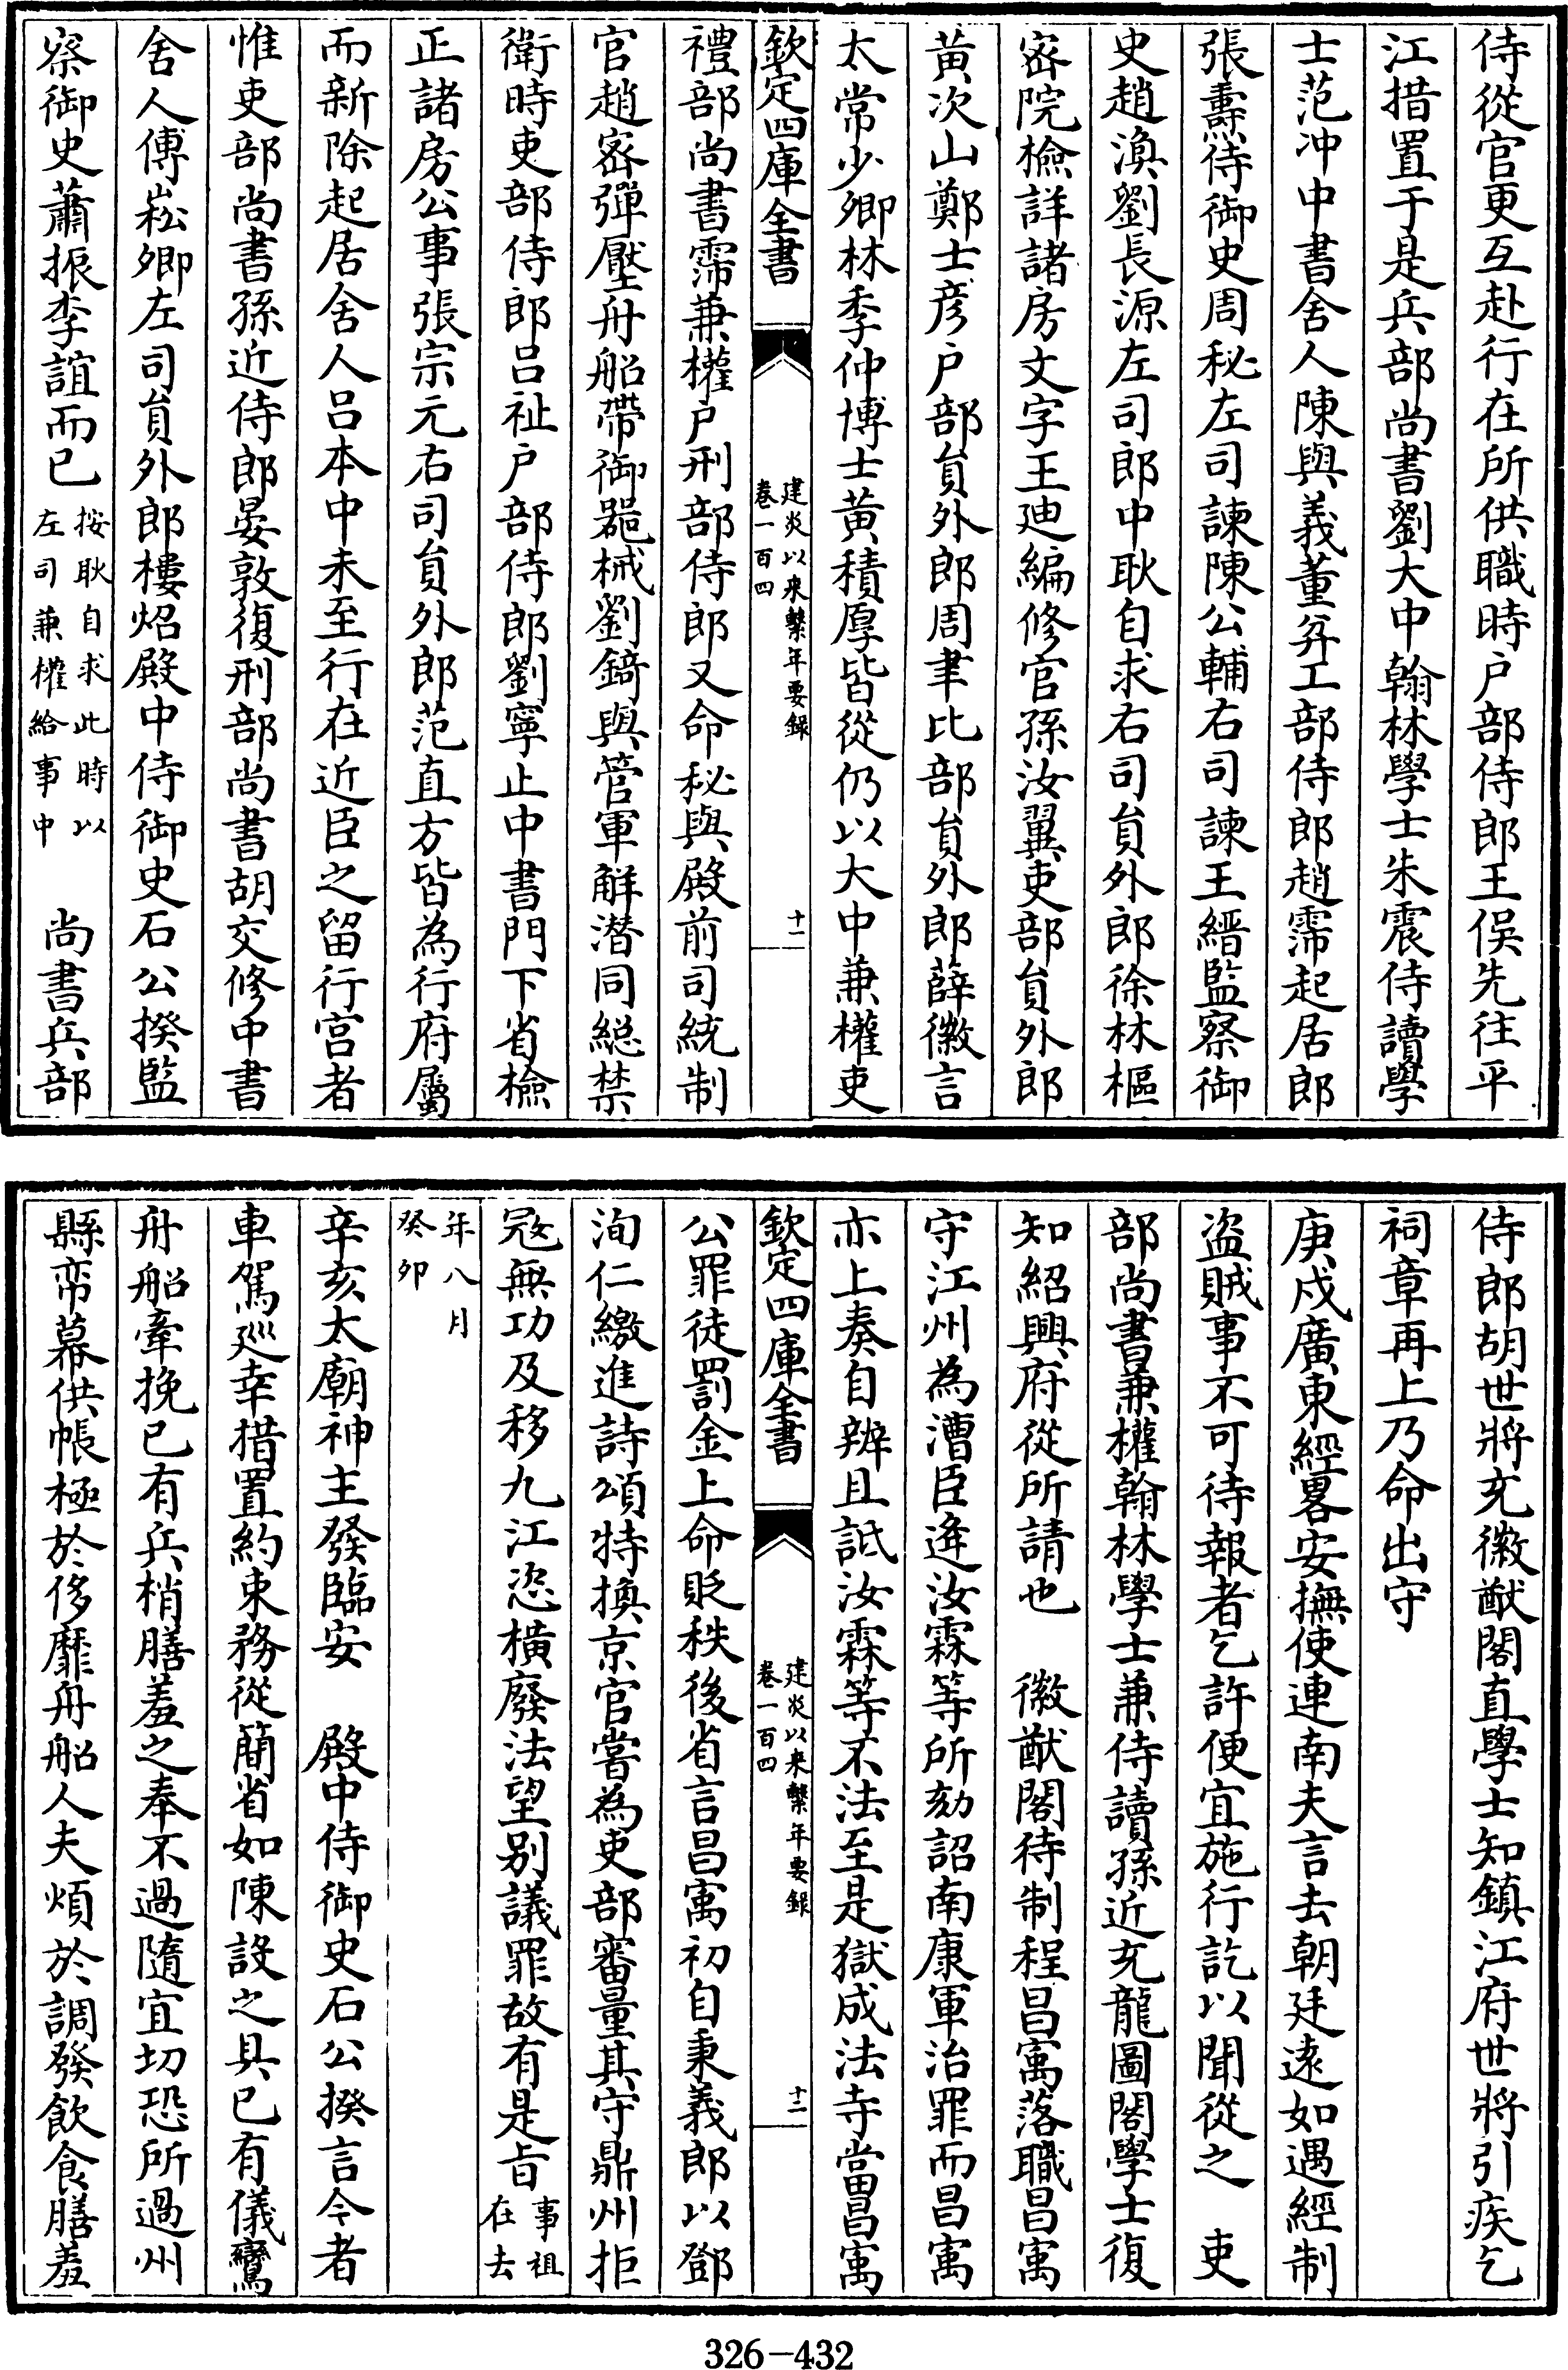 侍從官更互赴行在所供職時户部侍郎王俁先往平
江措置于是兵部尚書劉大中翰林學士朱震侍讀學
士范冲中書舍人陳與義董弅工部侍郎趙霈起居郎
張燾侍御史周秘左司諫陳公輔右司諫王縉監察御
史趙渙劉長源左司郎中耿自求右司員外郎徐林樞
宻院檢詳諸房文字王廸編修官孫汝翼吏部員外郎
黄次山鄭士彦户部員外郎周聿比部員外郎薛徽言
太常少卿林季仲博士黄積厚皆從仍以大中兼權吏
欽定四庫全書
建炎以來繫年要録
卷一百四
十一
禮部尚書霈兼權户刑部侍郎又命秘與殿前司統制
官趙宻彈壓舟船帶御器械劉錡與管軍解潜同総禁
衛時吏部侍郎吕祉户部侍郎劉寧止中書門下省檢
正諸房公事張宗元右司員外郎范直方皆為行府屬
而新除起居舍人吕本中未至行在近臣之留行宫者
惟吏部尚書孫近侍郎晏敦復刑部尚書胡交修中書
舍人傅崧卿左司員外郎樓炤殿中侍御史石公揆監
察御史蕭振李誼而已
按耿自求此時以
左司兼權給事中
尚書兵部
侍郎胡世將充徽猷閣直學士知鎮江府世將引疾乞
祠章再上乃命出守
庚戌廣東經畧安撫使連南夫言去朝廷逺如遇經制
盜賊事不可待報者乞許便宜施行訖以聞從之　吏
部尚書兼權翰林學士兼侍讀孫近充龍圖閣學士復
知紹興府從所請也　徽猷閣待制程昌㝢落職昌㝢
守江州為漕臣逄汝霖等所劾詔南康軍治罪而昌㝢
亦上奏自辨且詆汝霖等不法至是獄成法寺當昌㝢
欽定四庫全書
建炎以來繫年要録
卷一百四
十二
公罪徒罰金上命貶秩後省言昌㝢初自秉義郎以鄧
洵仁繳進詩頌特換京官嘗為吏部審量其守鼎州拒
宼無功及移九江恣横廢法望别議罪故有是㫖
事祖
在去
年八月
癸卯
辛亥太廟神主發臨安　殿中侍御史石公揆言今者
車駕廵幸措置約束務從簡省如陳設之具已有儀鸞
舟船牽挽已有兵梢膳羞之奉不過隨宜切恐所過州
縣帟幕供帳極於侈靡舟船人夫煩於調發飲食膳羞
326-432